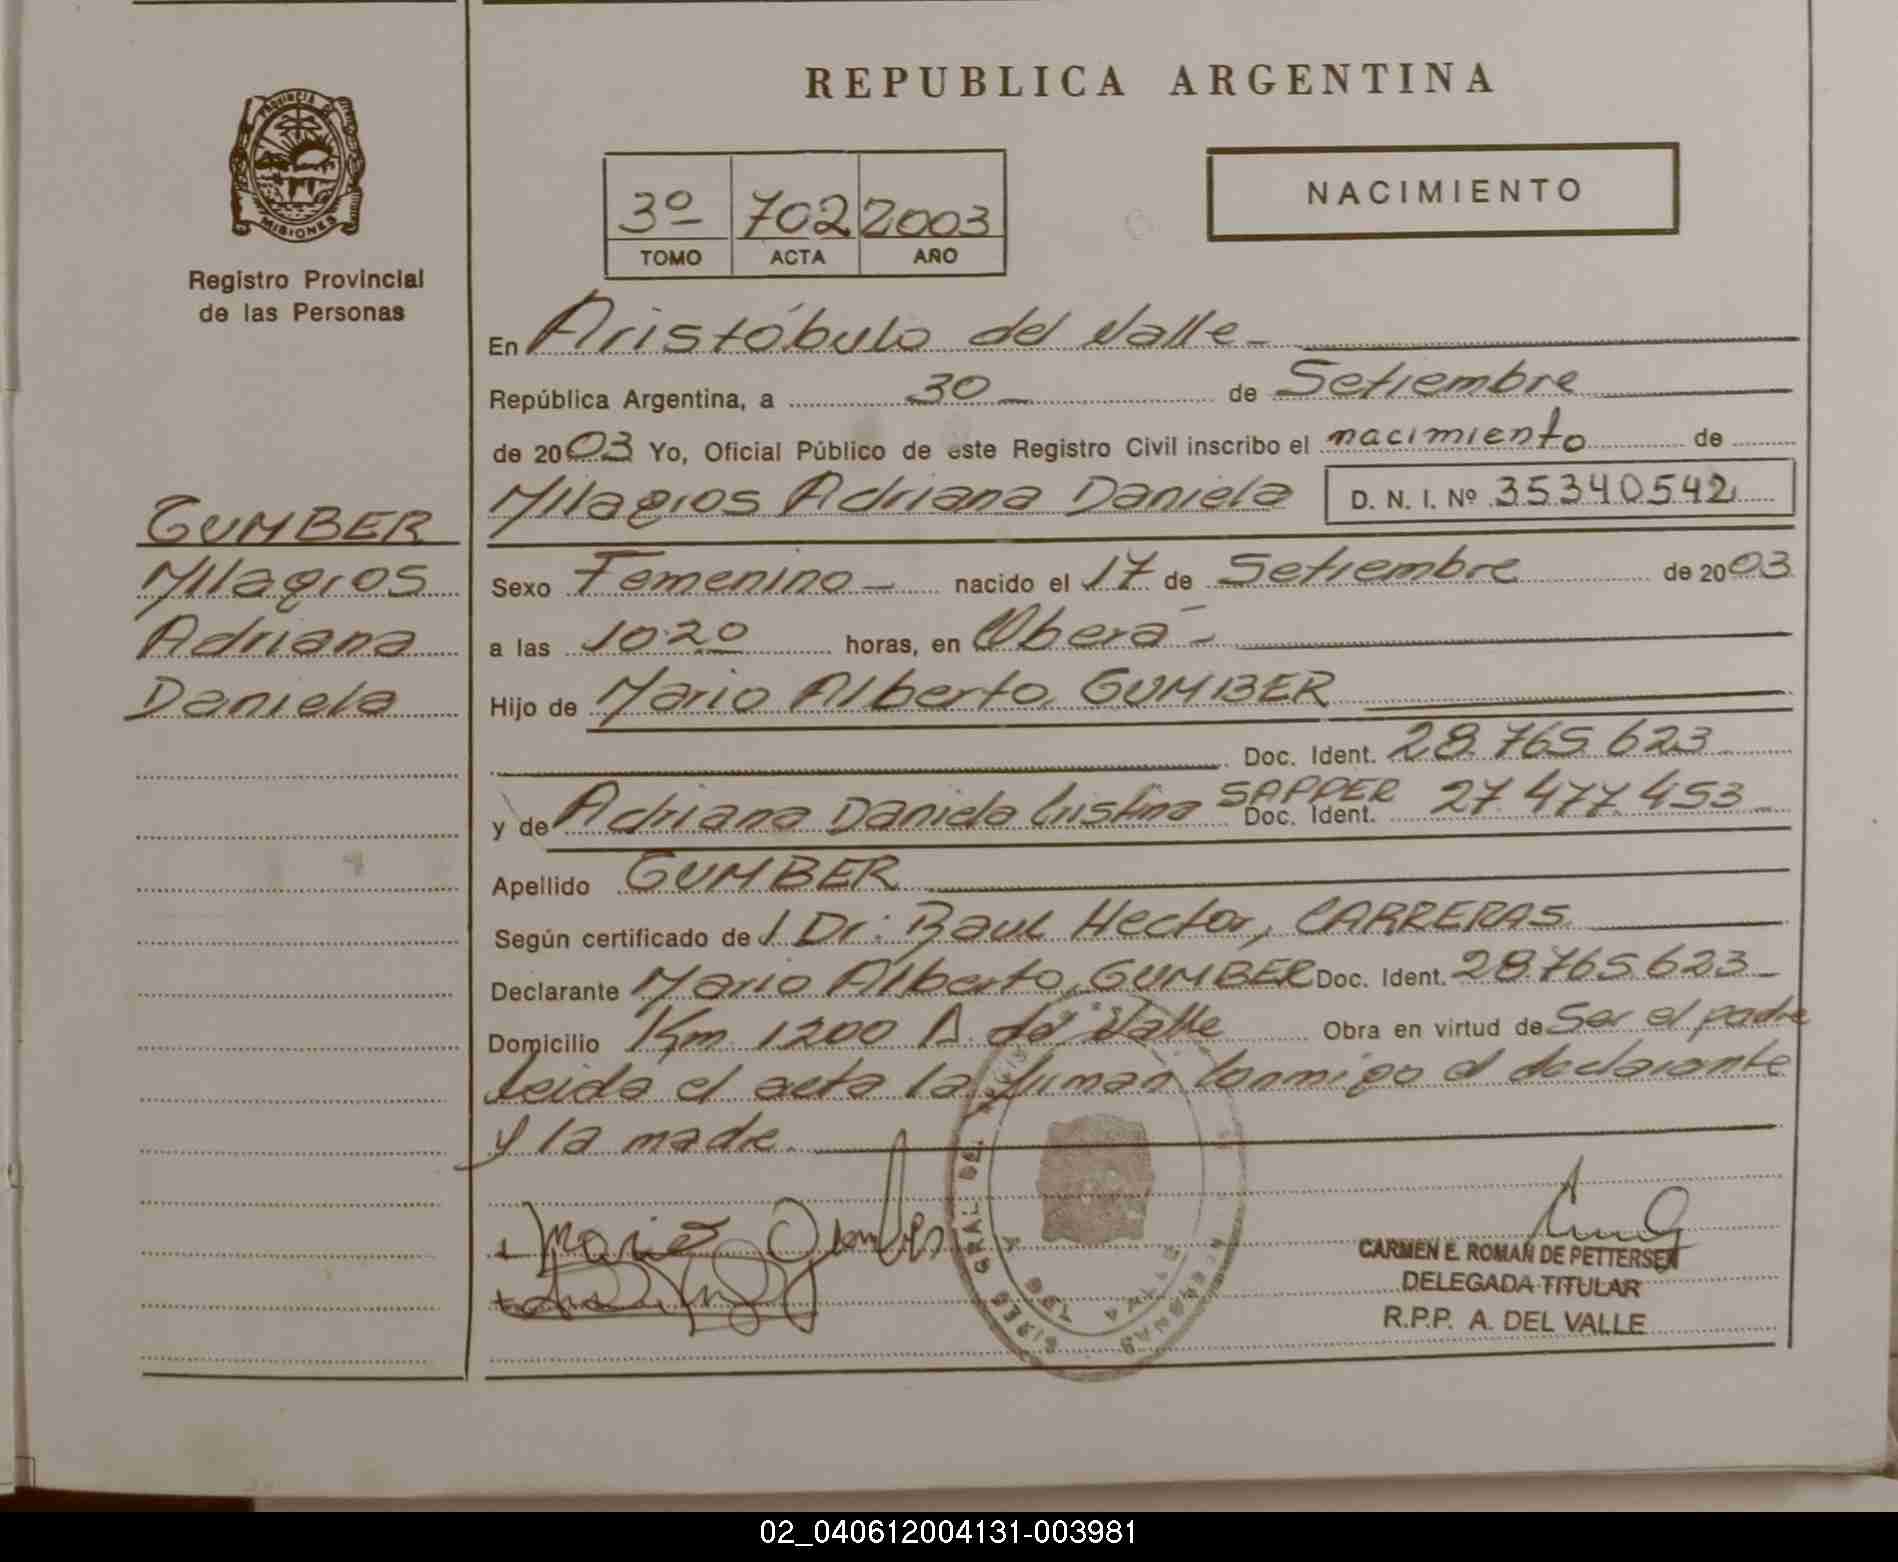 REPUBLICA ARGENTINA
PROVINCIA DE
MISIONES
Registro Provincial
de las Personas
3º 702 2003
TOMO ACTA AÑO
NACIMIENTO
En Aristóbulo del Valle
República Argentina, a 30 de Setiembre
de 2003 Yo, Oficial Público de este Registro Civil inscribo el nacimiento de
Milagros Adriana Daniela D. N. I. Nº 35340542
GUMBER
Milagros
Adriana
Daniela
Sexo Femenino nacido el 17 de Setiembre de 2003
a las 10.20 horas, en Oberá
Hijo de Mario Alberto, GUMBER
Doc. Ident. 28.765.623
y de Adriana Daniela Cristina SAPPER Doc. Ident. 27.477.453
Apellido GUMBER
Según certificado de / Dr. Raul Hector, CARRERAS
Declarante Mario Alberto, GUMBER Doc. Ident. 28.765.623
Domicilio Km 1200 A. del Valle Obra en virtud de Ser el padre
Leida el acta la firman conmigo el declarante
y la madre
CARMEN E. ROMAN DE PETTERSEN
DELEGADA TITULAR
R.P.P. A. DEL VALLE
02_040612004131-003981